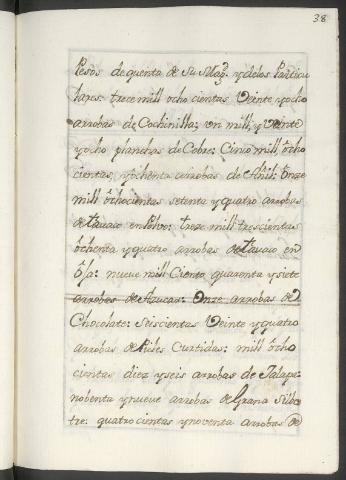 38
Pesos de quenta de Su Mag.ᵈ y de los Particu
lares: trece mill ocho cientas Veinte y ocho
arrobas de Cochinilla: un mill, y Veinte
y ocho planchas de Cobre: Cinco mill ôcho
cientas, y ôchenta arrobas de Añil: ônze
mill ôchocientas setenta y quatro arrobas
de tavaco en Polvo: treze mill trescientas
ôchenta y quatro arrobas de tavaco en
ôja: nueve mill Ciento quarenta y siete
arrobas de Azucar: Onze arrobas de
Chocolate: Seiscientas Veinte y quatro
arrobas de Pieles Curtidas: mill ôcho
cientas diez y seis arrobas de Jalapa:
nobenta y nueve arrobas de Grana Silbes
tre: quatro cientas y noventa arrobas de